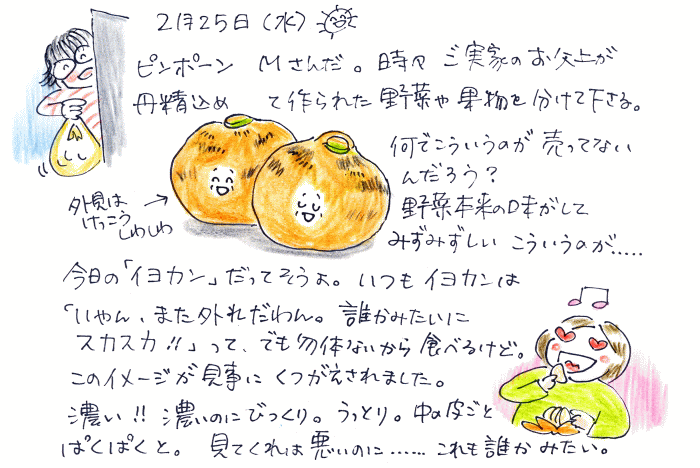 2月25日(水)
ピンポーン Mさんだ。時々 ご実家のお父上が
丹精込め て作られた野菜や果物を分けて下さる。
何でこういうのが 売ってない
んだろう?
野菜本来の味がして
みずみずしい こういうのが.....
外見は
けっこう
しわしわ
今日の「イヨカン」だってそうよ。いつもイヨカンは
「いやん、また外れだわん。誰かみたいに
スカスカ!!」って、でも勿体ないから食べるけど。
このイメージが見事に くつがえされました。
濃い!! 濃いのにびっくり。うっとり。中の皮ごと
ぱくぱくと。 見てくれは悪いのに…… これも誰かみたい。